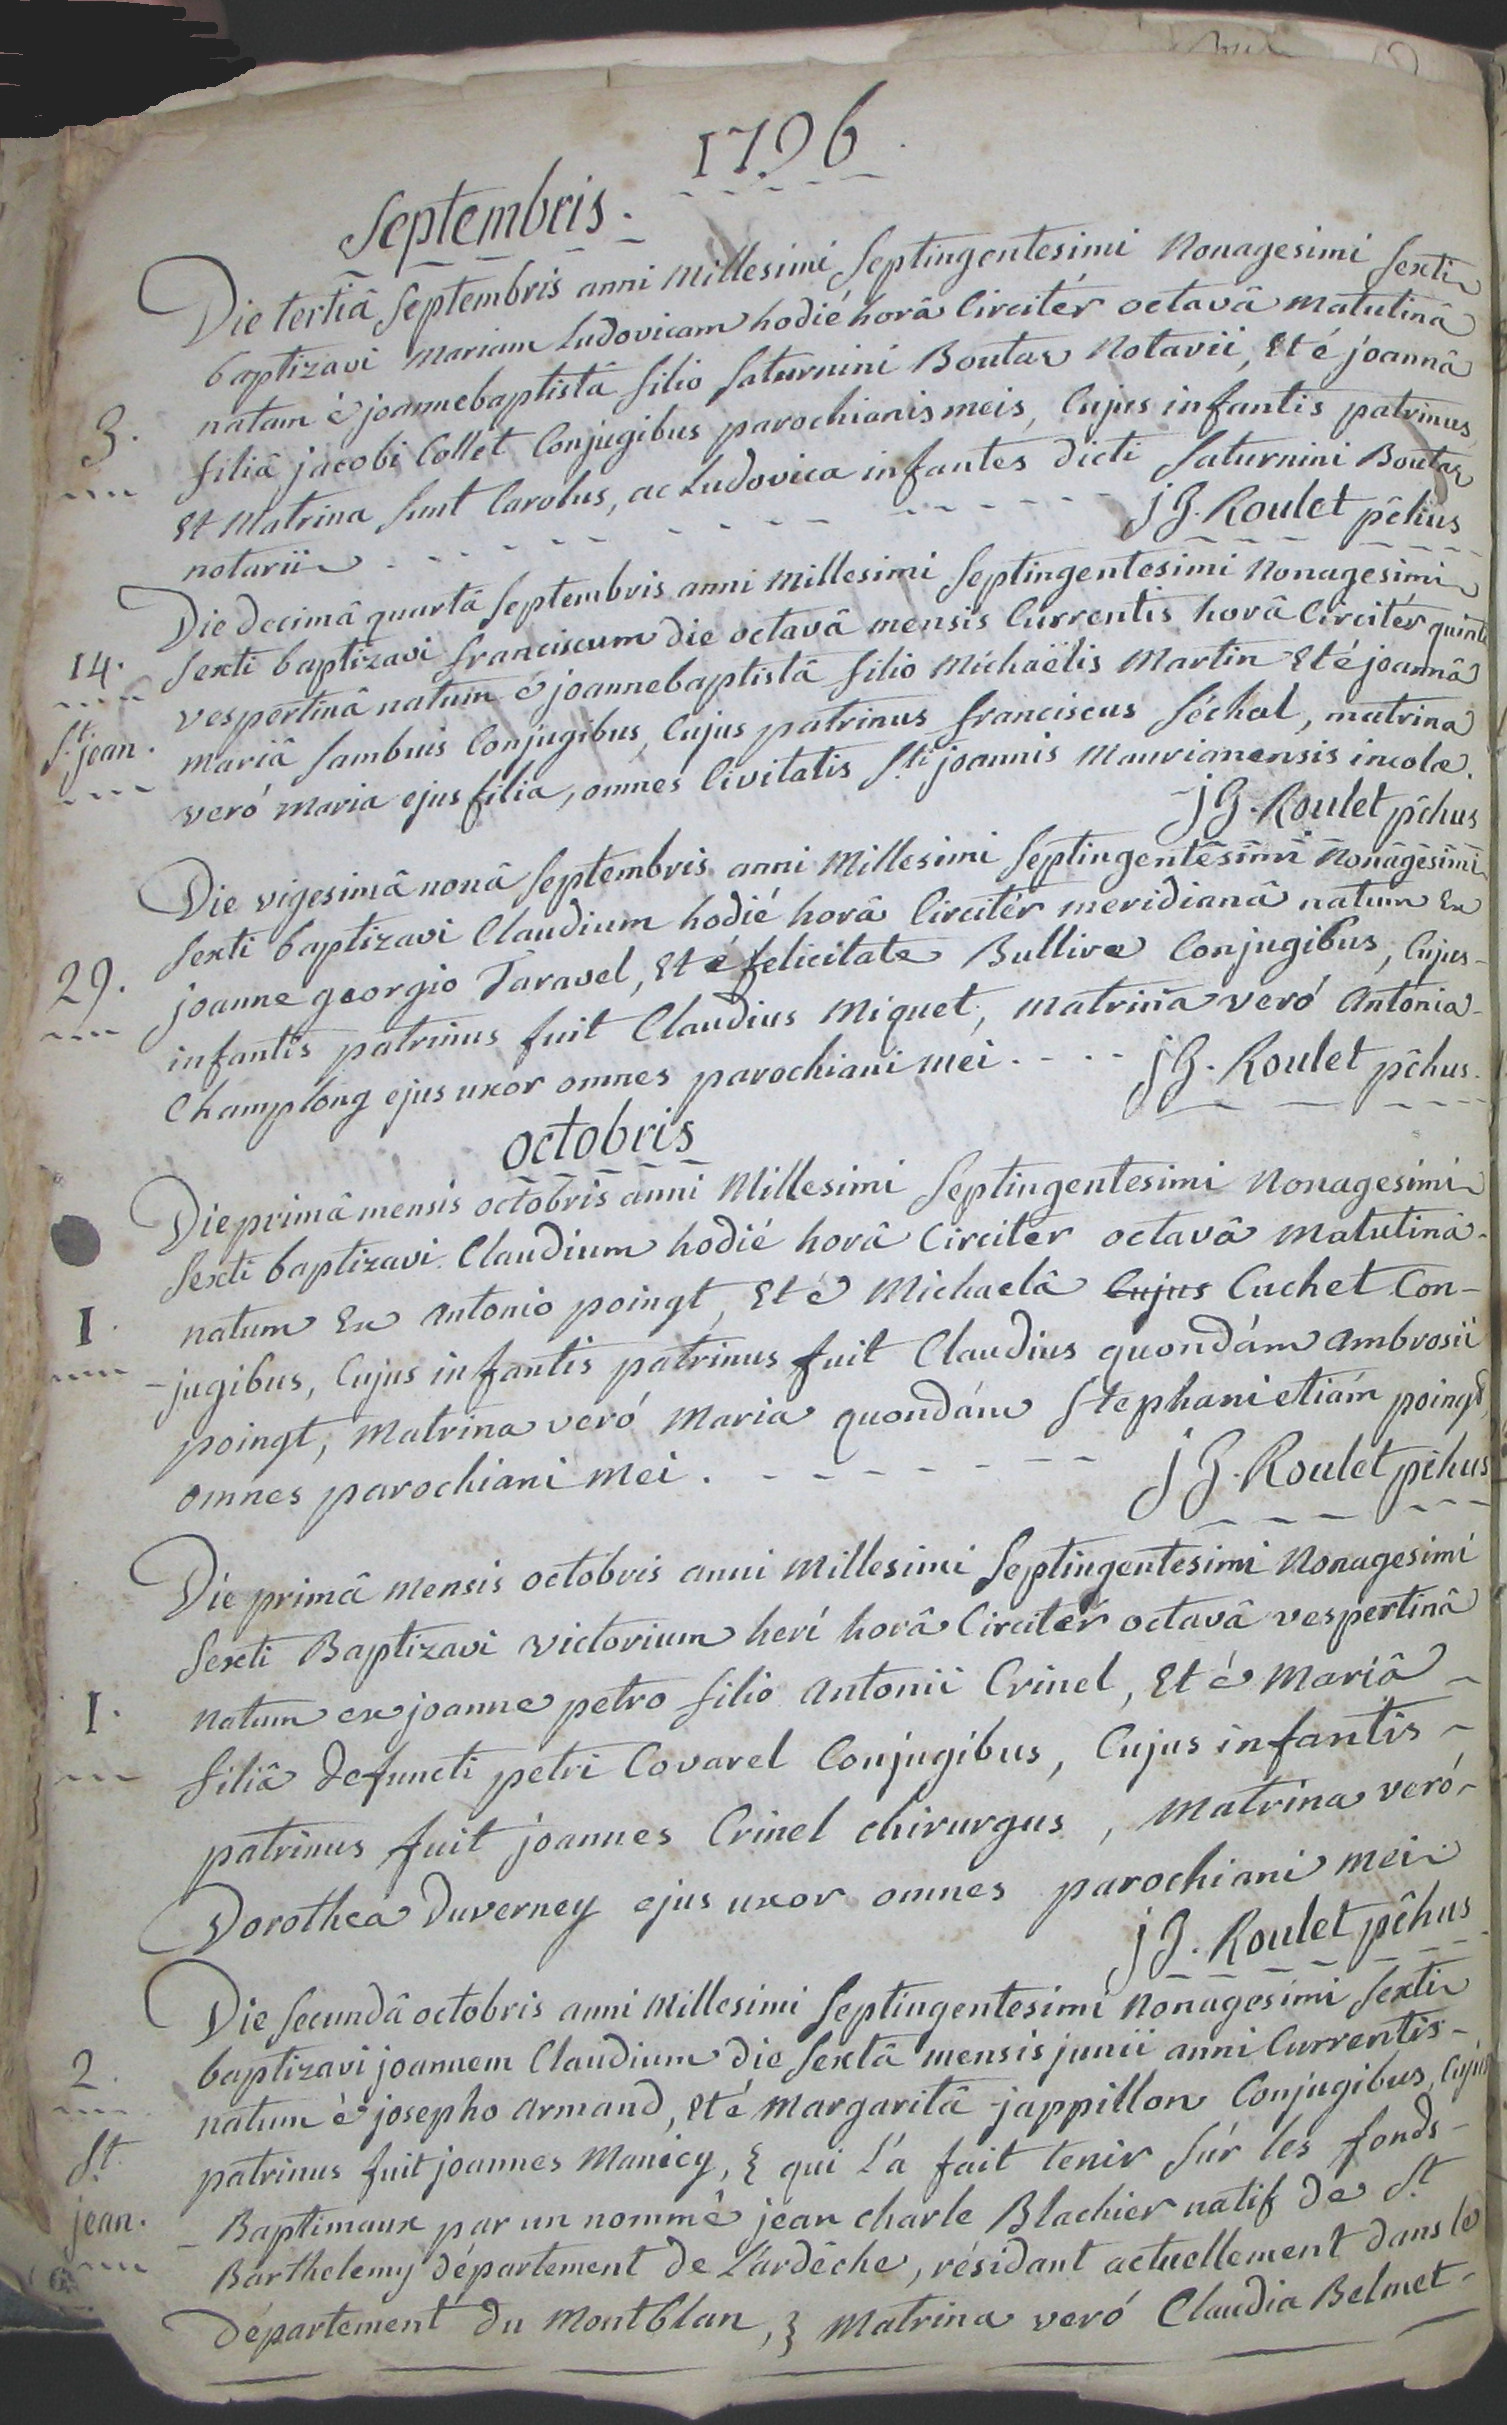 1796.
Septembris.
Die tertiâ Septembris anni Millesimi Septingentesimi Nonagesimi Sexti
baptizavi Mariam Ludovicam hodié horâ Circitér octavâ Matutinâ
natam è joannebaptistâ filio Saturnini Boutax Notarii, Et é joannâ
3.
filiâ jacobi Collet Conjugibus parochianis meis, Cujus infantis patrinus
Et Matrina Sunt Carolus, ac Ludovica infantes dicti Saturnini Boutax
notarii
j G. Roulet pêhus
Die decimâ quartâ Septembris anni Millesimi Septingentesimi Nonagesimi
14.
Sexti baptizavi franciscum die octavâ mensis Currentis horâ Circitér quintâ
vespertinâ natum é joannebaptistâ filio Michaëlis Martin Et é joannâ
St. jean.
Mariâ Sambuis Conjugibus, Cujus patrinus franciscus Séchal, matrina
veró Maria ejus filia, omnes Civitatis Sti joannis Maurianensis incolæ.
j G. Roulet pêhus
Die vigesimâ nonâ Septembris anni Millesimi Septingentesimi Nonagesimi
Sexti baptizavi Claudium hodié horâ Circitér meridianâ natum Ex
29.
joanne georgio Taravel, Et é felicitate Bullire Conjugibus, Cujus
infantis patrinus fuit Claudius Miquet, Matrina veró Antonia
Champlong ejus uxor omnes parochiani mei.
j G. Roulet pêhus.
octobris
Die primâ mensis octobris anni Millesimi Septingentesimi Nonagesimi
Sexti baptizavi Claudium hodié horâ Circiter octavâ Matutinâ
I.
natum Ex Antonio poingt, Et é Michaelâ Cujus Cuchet Con-
-jugibus, Cujus infantis patrinus fuit Claudius quondám Ambrosii
poingt, Matrina veró Maria quondám Stephani etiám poingt,
omnes parochiani Mei.
j G. Roulet pêhus
Die primâ mensis octobris anni Millesimi Septingentesimi Nonagesimi
Sexti Baptizavi victorium herí horâ Circitér octavâ vespertinâ
I.
natum ex joanne petro filio Antonii Crinel, Et é Mariâ
filiâ defuncti petri Covarel Conjugibus, Cujus infantis
patrinus fuit joannes Crinel chirurgus, Matrina veró
Dorothea Duverney ejus uxor omnes parochiani mei
j G. Roulet pêhus
Die Secundâ octobris anni Millesimi Septingentesimi Nonagesimi Sexti
2.
baptizavi joannem Claudium die Sextâ mensis junii anni Currentis
natum é josepho Armand, Et é Margaritâ jappillon Conjugibus, Cujus
St.
patrinus fuit joannes Manécy, { qui L'a fait tenir Súr les fonds
jean.
Baptimaux par un nommé jean charle Blachier natif de St
Barthelemy département de L'ardêche, résidant actuellement dans le
département du Montblan, } Matrina veró Claudia Belmet